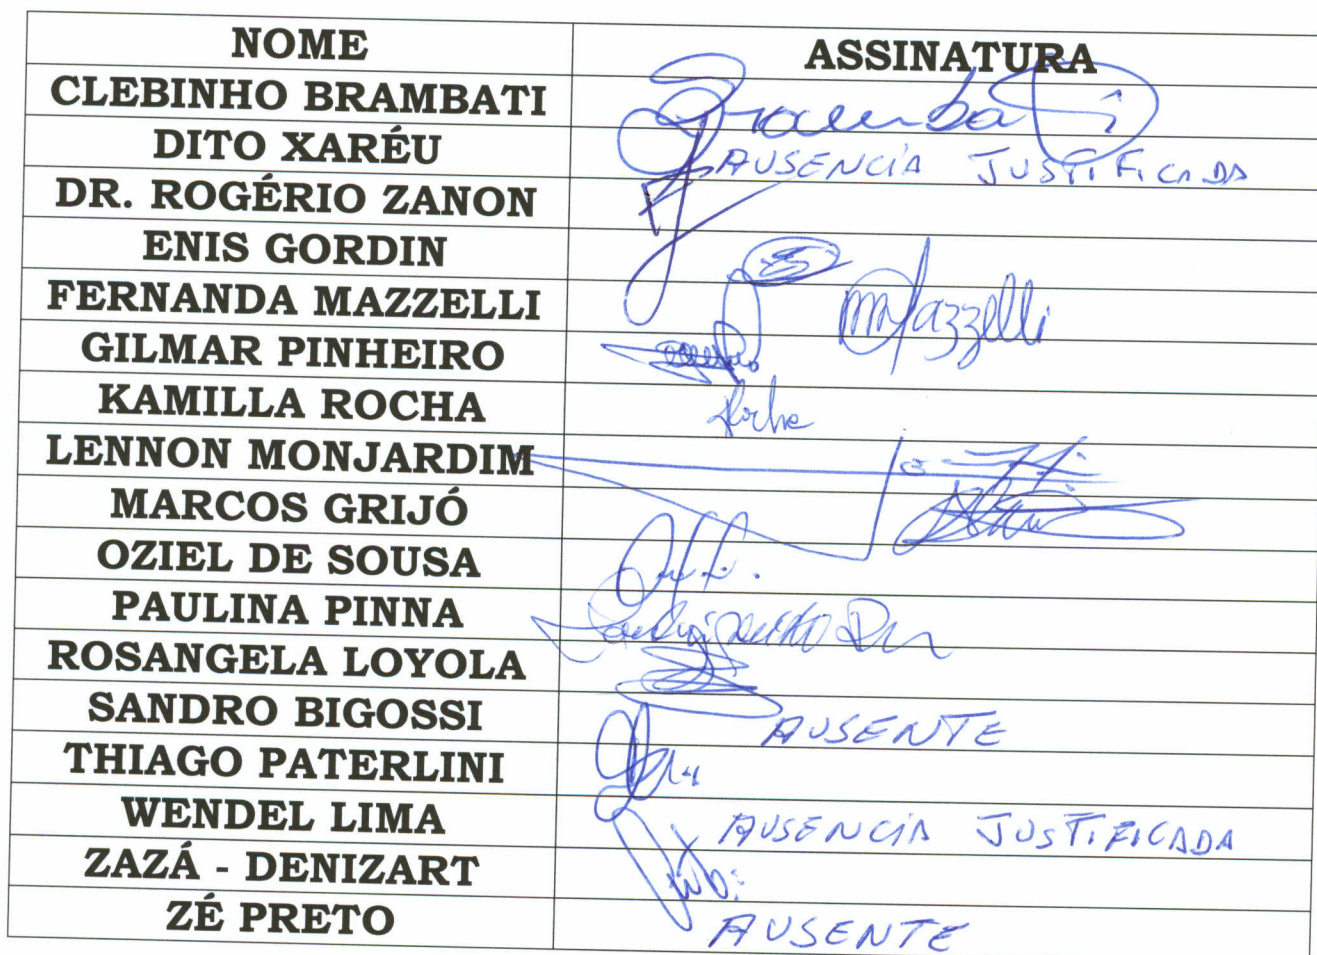 NOME ASSINATURA
CLEBINHO BRAMBATI Brambati
DITO XARÉU AUSENCIA JUSTIFICADA
DR. ROGÉRIO ZANON
ENIS GORDIN
FERNANDA MAZZELLI Mazzelli
GILMAR PINHEIRO
KAMILLA ROCHA Rocha
LENNON MONJARDIM
MARCOS GRIJÓ
OZIEL DE SOUSA
PAULINA PINNA
ROSANGELA LOYOLA
SANDRO BIGOSSI AUSENTE
THIAGO PATERLINI
WENDEL LIMA AUSENCIA JUSTIFICADA
ZAZÁ - DENIZART
ZÉ PRETO AUSENTE